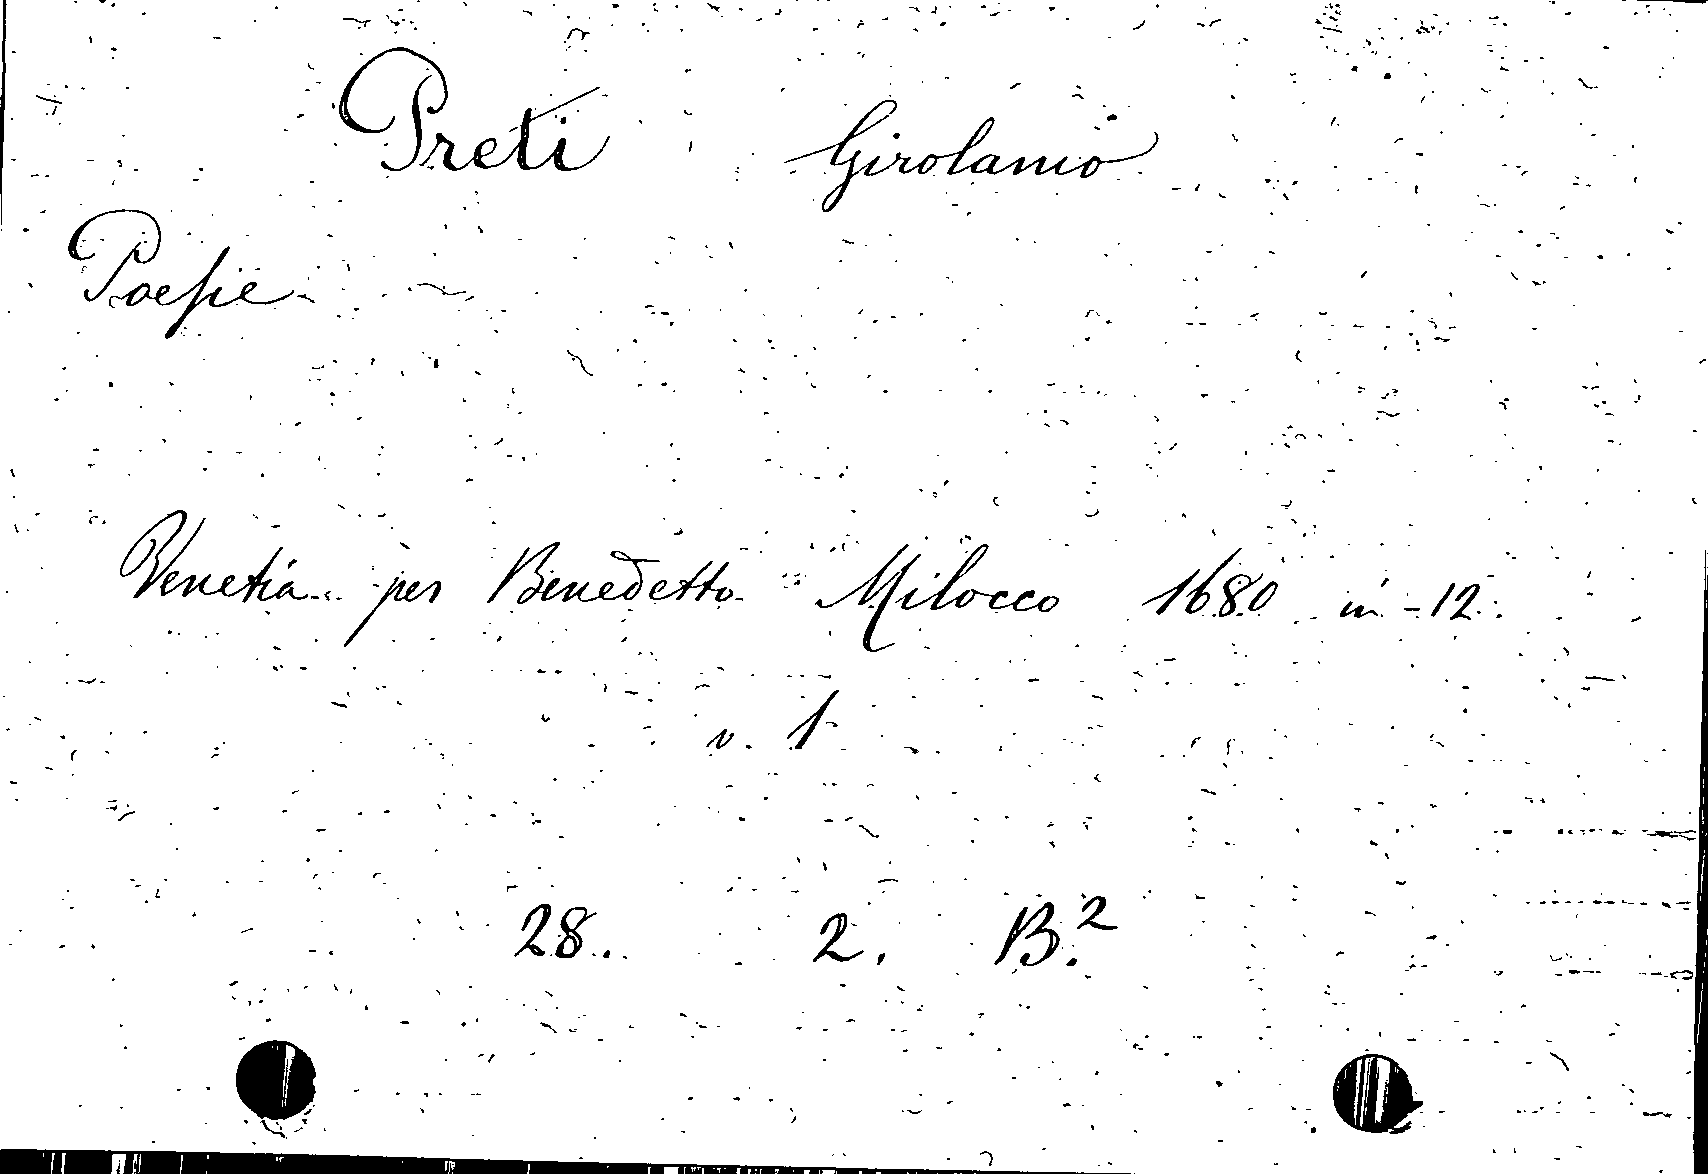 Preti Girolamo
Poesie
Venetia per Benedetto Milocco 1680 in-12.
v. 1
28. 2. B.²